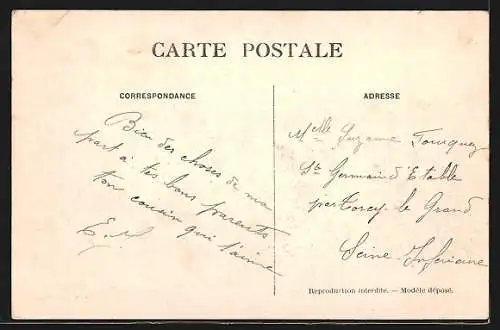 CARTE POSTALE
CORRESPONDANCE
Bien des choses de ma
part à tes bons parents
ton cousin qui t'aime
ADRESSE
Melle Suzanne
St Germain d'Etable
par Torcy le Grand
Seine Inférieure
Reproduction interdite. — Modèle déposé.